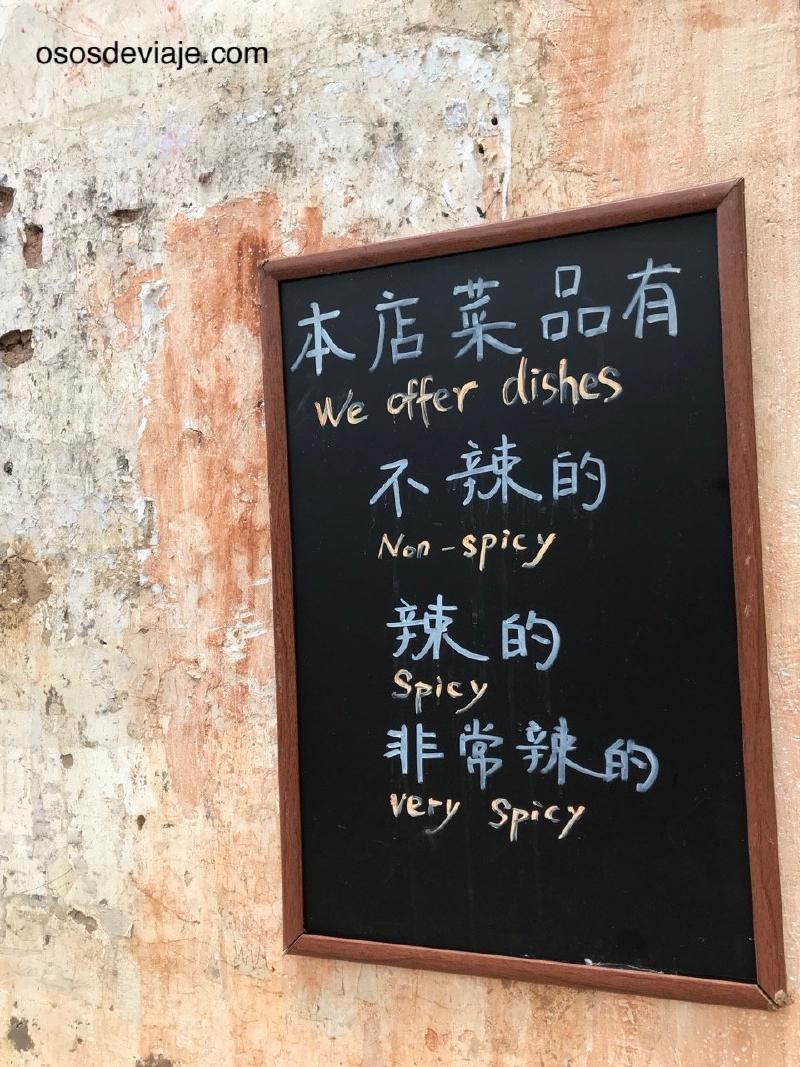 ososdeviaje.com
本店菜品有
We offer dishes
不辣的
Non-spicy
辣的
Spicy
非常辣的
very spicy